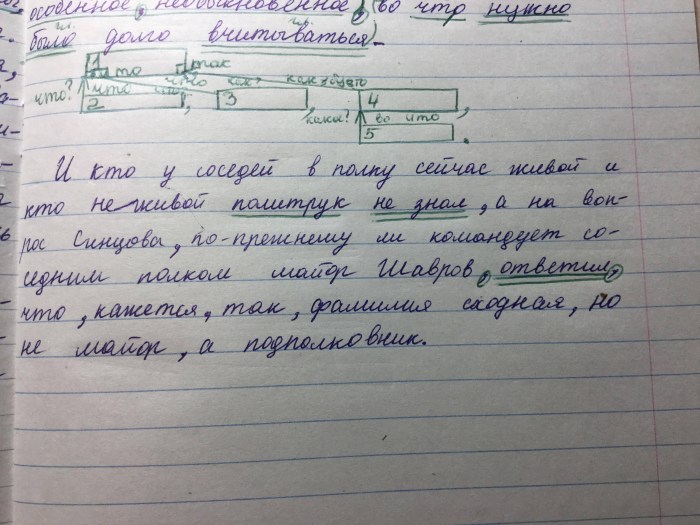 особенное, необыкновенное, (во что нужно
гл. гл.
было долго вчитываться).
1
то так
что? что что как? как будто
2 , 3 , 4 ,
какое? во что
5 .
И кто у соседей в полку сейчас живой и
кто не живой политрук не знал, а на воп-
рос Синцова, по-прежнему ли командует со-
седним полком майор Шавров, ответил,
что, кажется, так, фамилия сходная, но
не майор, а подполковник.